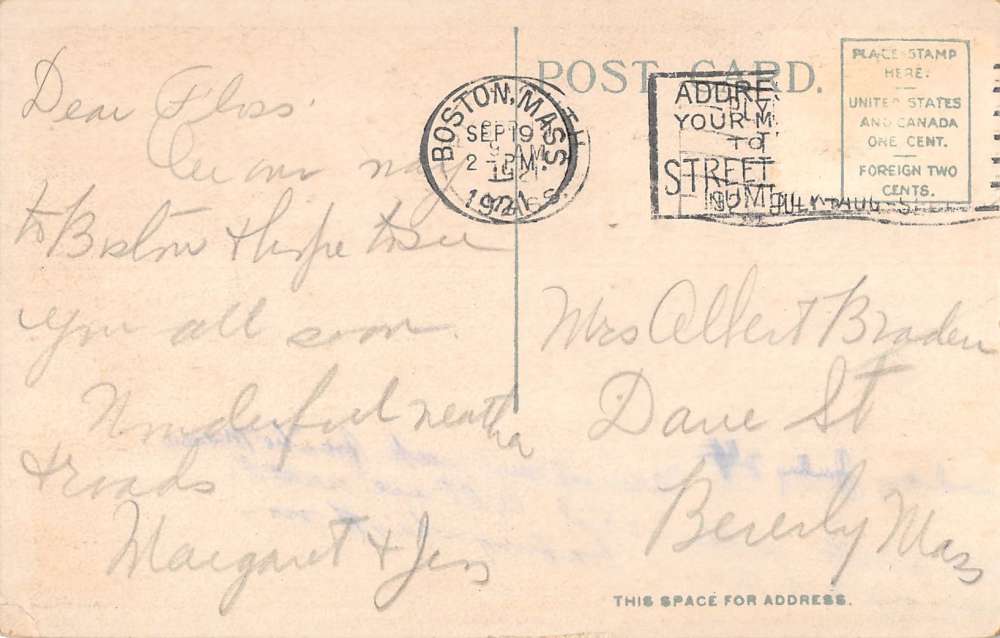 Dear Floss.
On our way
to Boston & hope to see
you all soon.
Wonderful weather
& roads
Margaret & Jen
POST CARD.
BOSTON, MASS.
SEP 19
2 - PM
1921
ADDRE
YOUR M
TO
STREET
NUM
PLACE STAMP
HERE.
UNITED STATES
AND CANADA
ONE CENT.
FOREIGN TWO
CENTS.
Mrs Albert Braden
Dane St
Beverly Mass
THIS SPACE FOR ADDRESS.